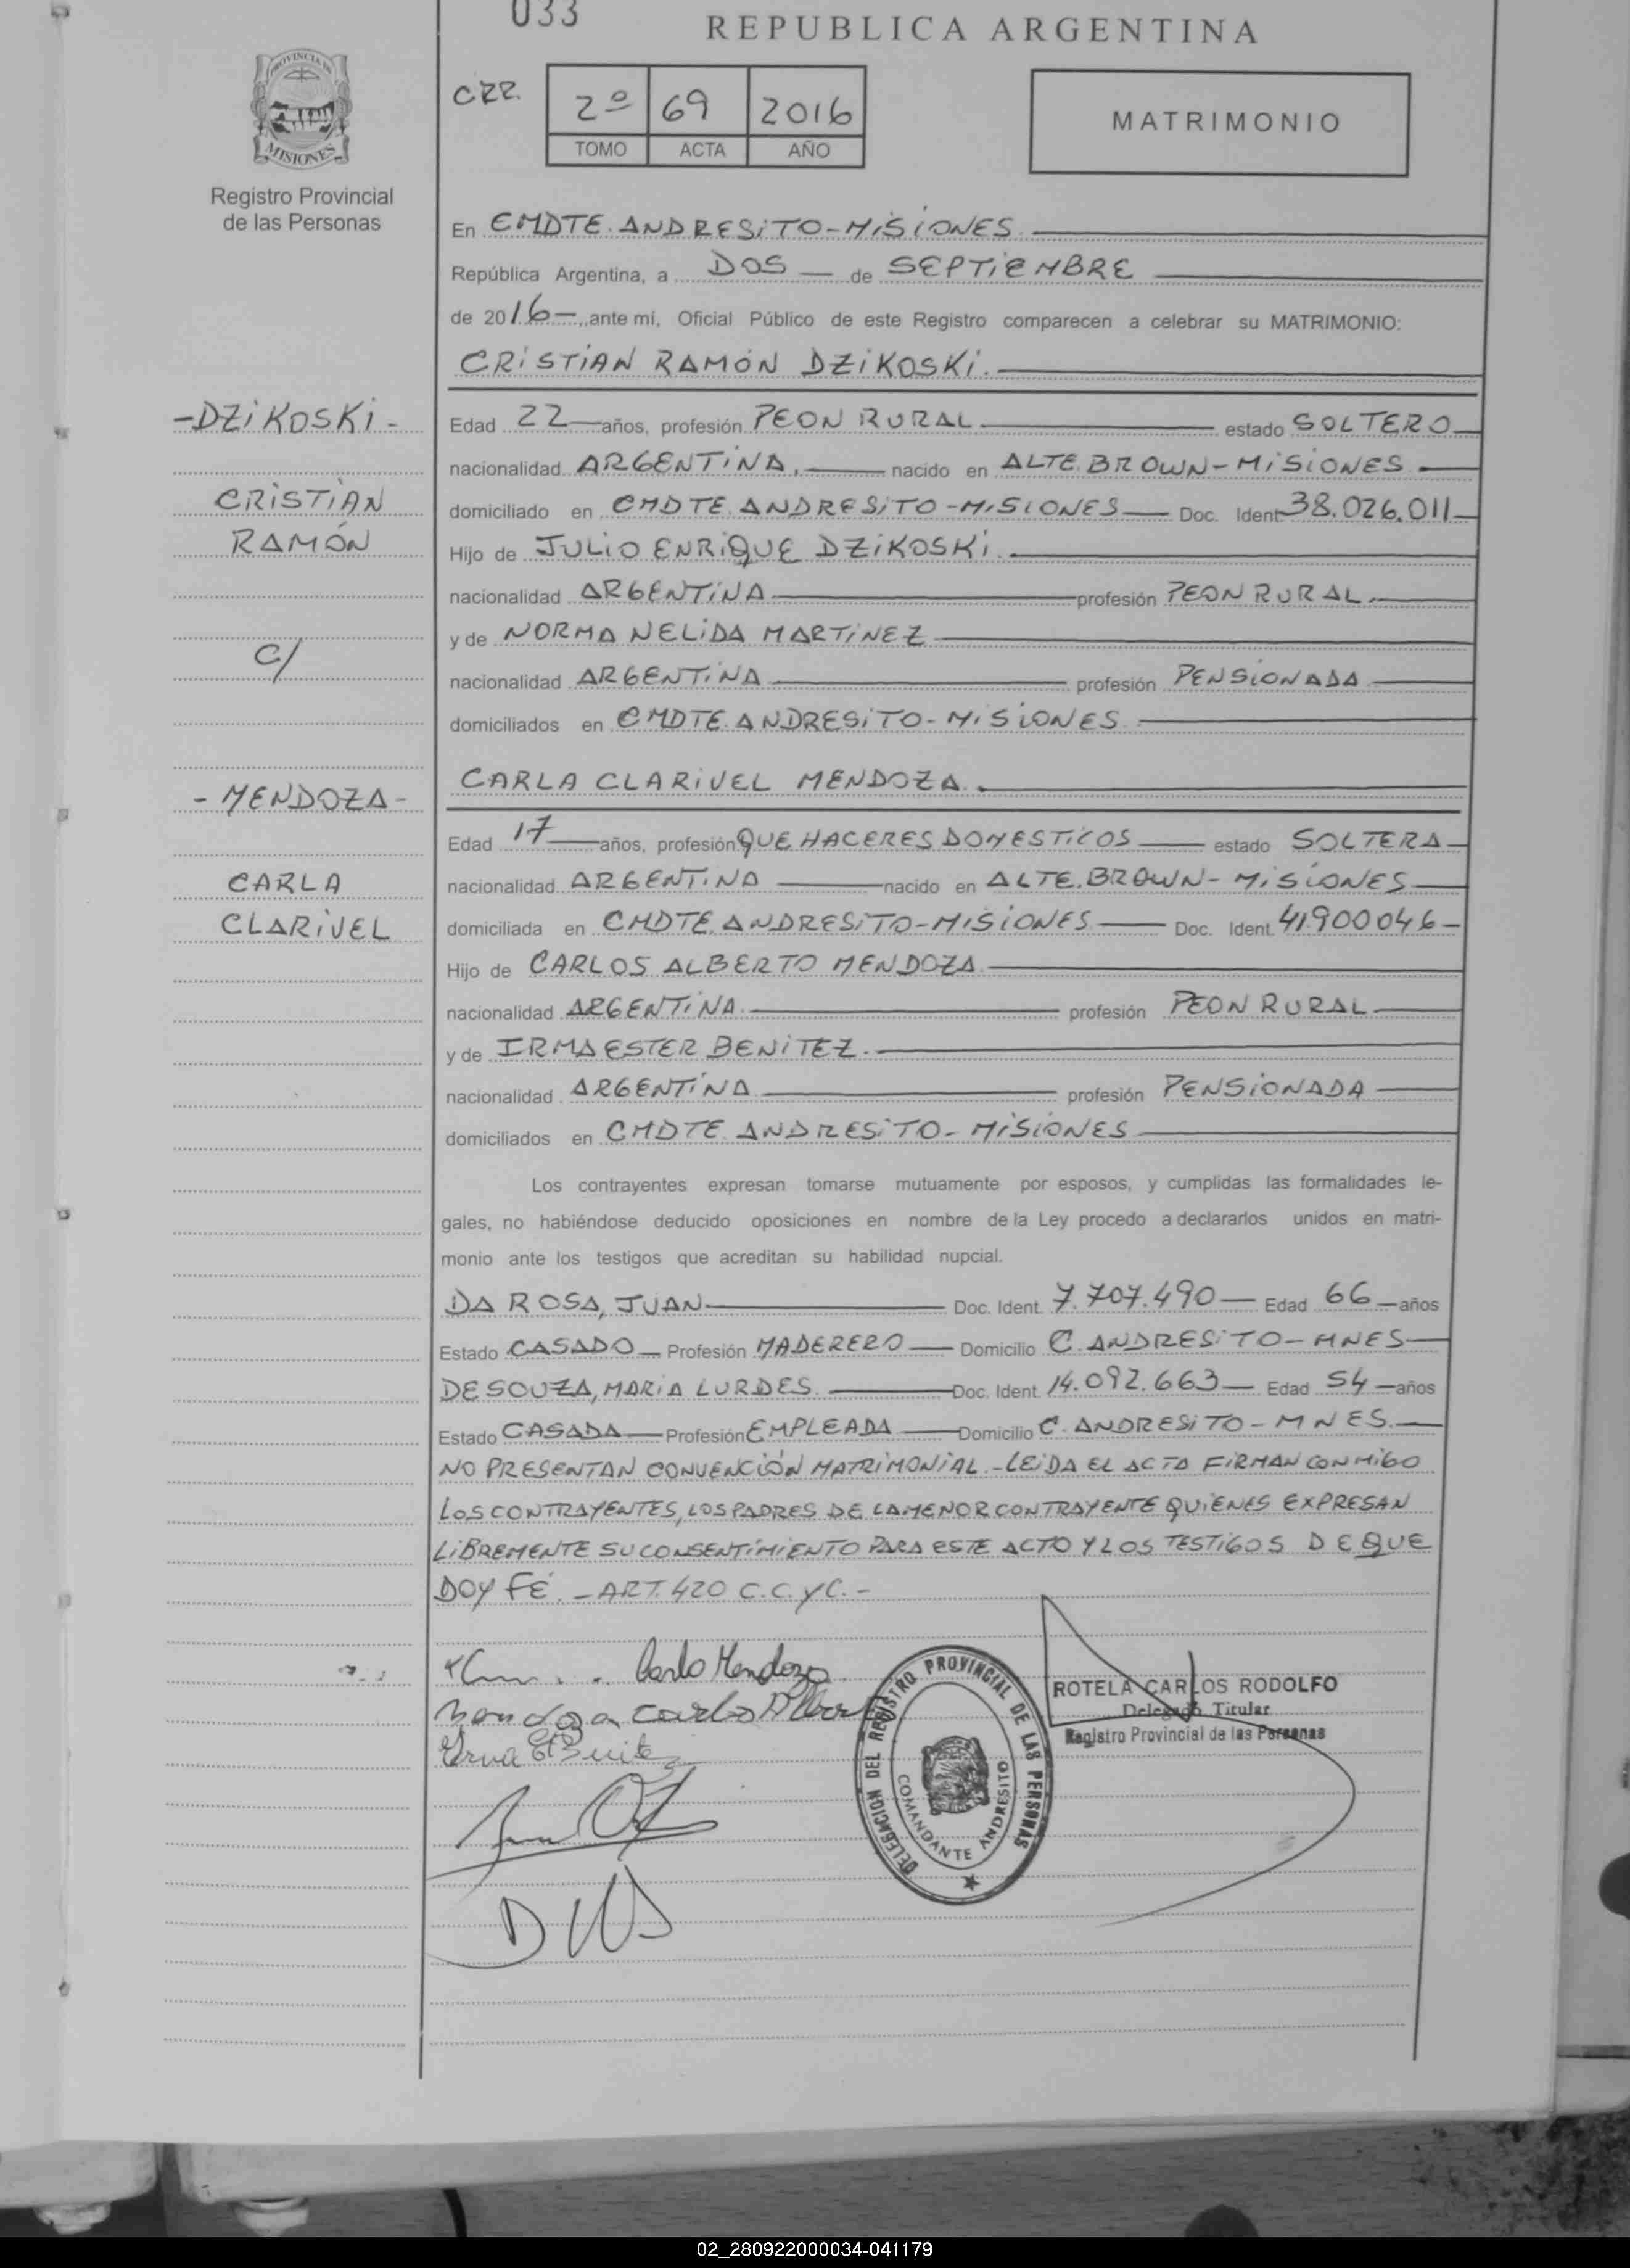 033
REPUBLICA ARGENTINA
PROVINCIA DE
MISIONES
Registro Provincial
de las Personas
CRR.
2º 69 2016
TOMO ACTA AÑO
MATRIMONIO
En CMDTE. ANDRESiTO-MiSiONES.
República Argentina, a DOS de SEPTiEMBRE
de 2016 ,ante mi, Oficial Público de este Registro comparecen a celebrar su MATRIMONIO:
CRiSTiAN RAMÓN DZiKOSKi.
-DZiKOSKi-
Edad 22 años, profesión PEON RURAL estado SOLTERO
nacionalidad ARGENTiNA, nacido en ALTE. BROWN-MiSiONES
CRiSTiAN
domiciliado en CMDTE. ANDRESiTO-MiSiONES Doc. Ident 38.026.011
RAMÓN
Hijo de JULiO ENRiQUE DZiKOSKi.
nacionalidad ARGENTiNA profesión PEON RURAL.
y de NORMA NELiDA MARTiNEZ
C/
nacionalidad ARGENTiNA profesión PENSiONADA
domiciliados en CMDTE. ANDRESiTO-MiSiONES
CARLA CLARiVEL MENDOZA.
-MENDOZA-
Edad 17 años, profesión QUE HACERES DOMESTiCOS estado SOLTERA
CARLA
nacionalidad ARGENTiNA nacido en ALTE. BROWN-MiSiONES
CLARiVEL
domiciliada en CMDTE. ANDRESiTO-MiSiONES Doc. Ident. 41900046-
Hijo de CARLOS ALBERTO MENDOZA.
nacionalidad ARGENTiNA. profesión PEON RURAL
y de IRMA ESTER BENiTEZ.
nacionalidad ARGENTiNA profesión PENSiONADA
domiciliados en CMDTE. ANDRESiTO-MiSiONES
Los contrayentes expresan tomarse mutuamente por esposos, y cumplidas las formalidades le-
gales, no habiéndose deducido oposiciones en nombre de la Ley procedo a declararlos unidos en matri-
monio ante los testigos que acreditan su habilidad nupcial.
DA ROSA, JUAN Doc. Ident. 7.707.490 Edad 66 años
Estado CASADO Profesión MADERERO Domicilio C. ANDRESiTO-MNES
DE SOUZA, MARiA LURDES. Doc. Ident. 14.092.663 Edad 54 años
Estado CASADA Profesión EMPLEADA Domicilio C. ANDRESiTO-MNES.
NO PRESENTAN CONVENCiÓN MATRiMONiAL.-LEiDA EL ACTA FiRMAN CONMiGO
LOS CONTRAYENTES, LOS PADRES DE LA MENOR CONTRAYENTE QUiENES EXPRESAN
LiBREMENTE SU CONSENTiMiENTO PARA ESTE ACTO Y LOS TESTiGOS DE QUE
DOY FÉ.-ART. 420 C.C.yC.-
Carla Mendoza
DELEGACION DEL REGISTRO PROVINCIAL DE LAS PERSONAS
COMANDANTE ANDRESITO
ROTELA CARLOS RODOLFO
Delegado Titular
Registro Provincial de las Personas
02_280922000034-041179